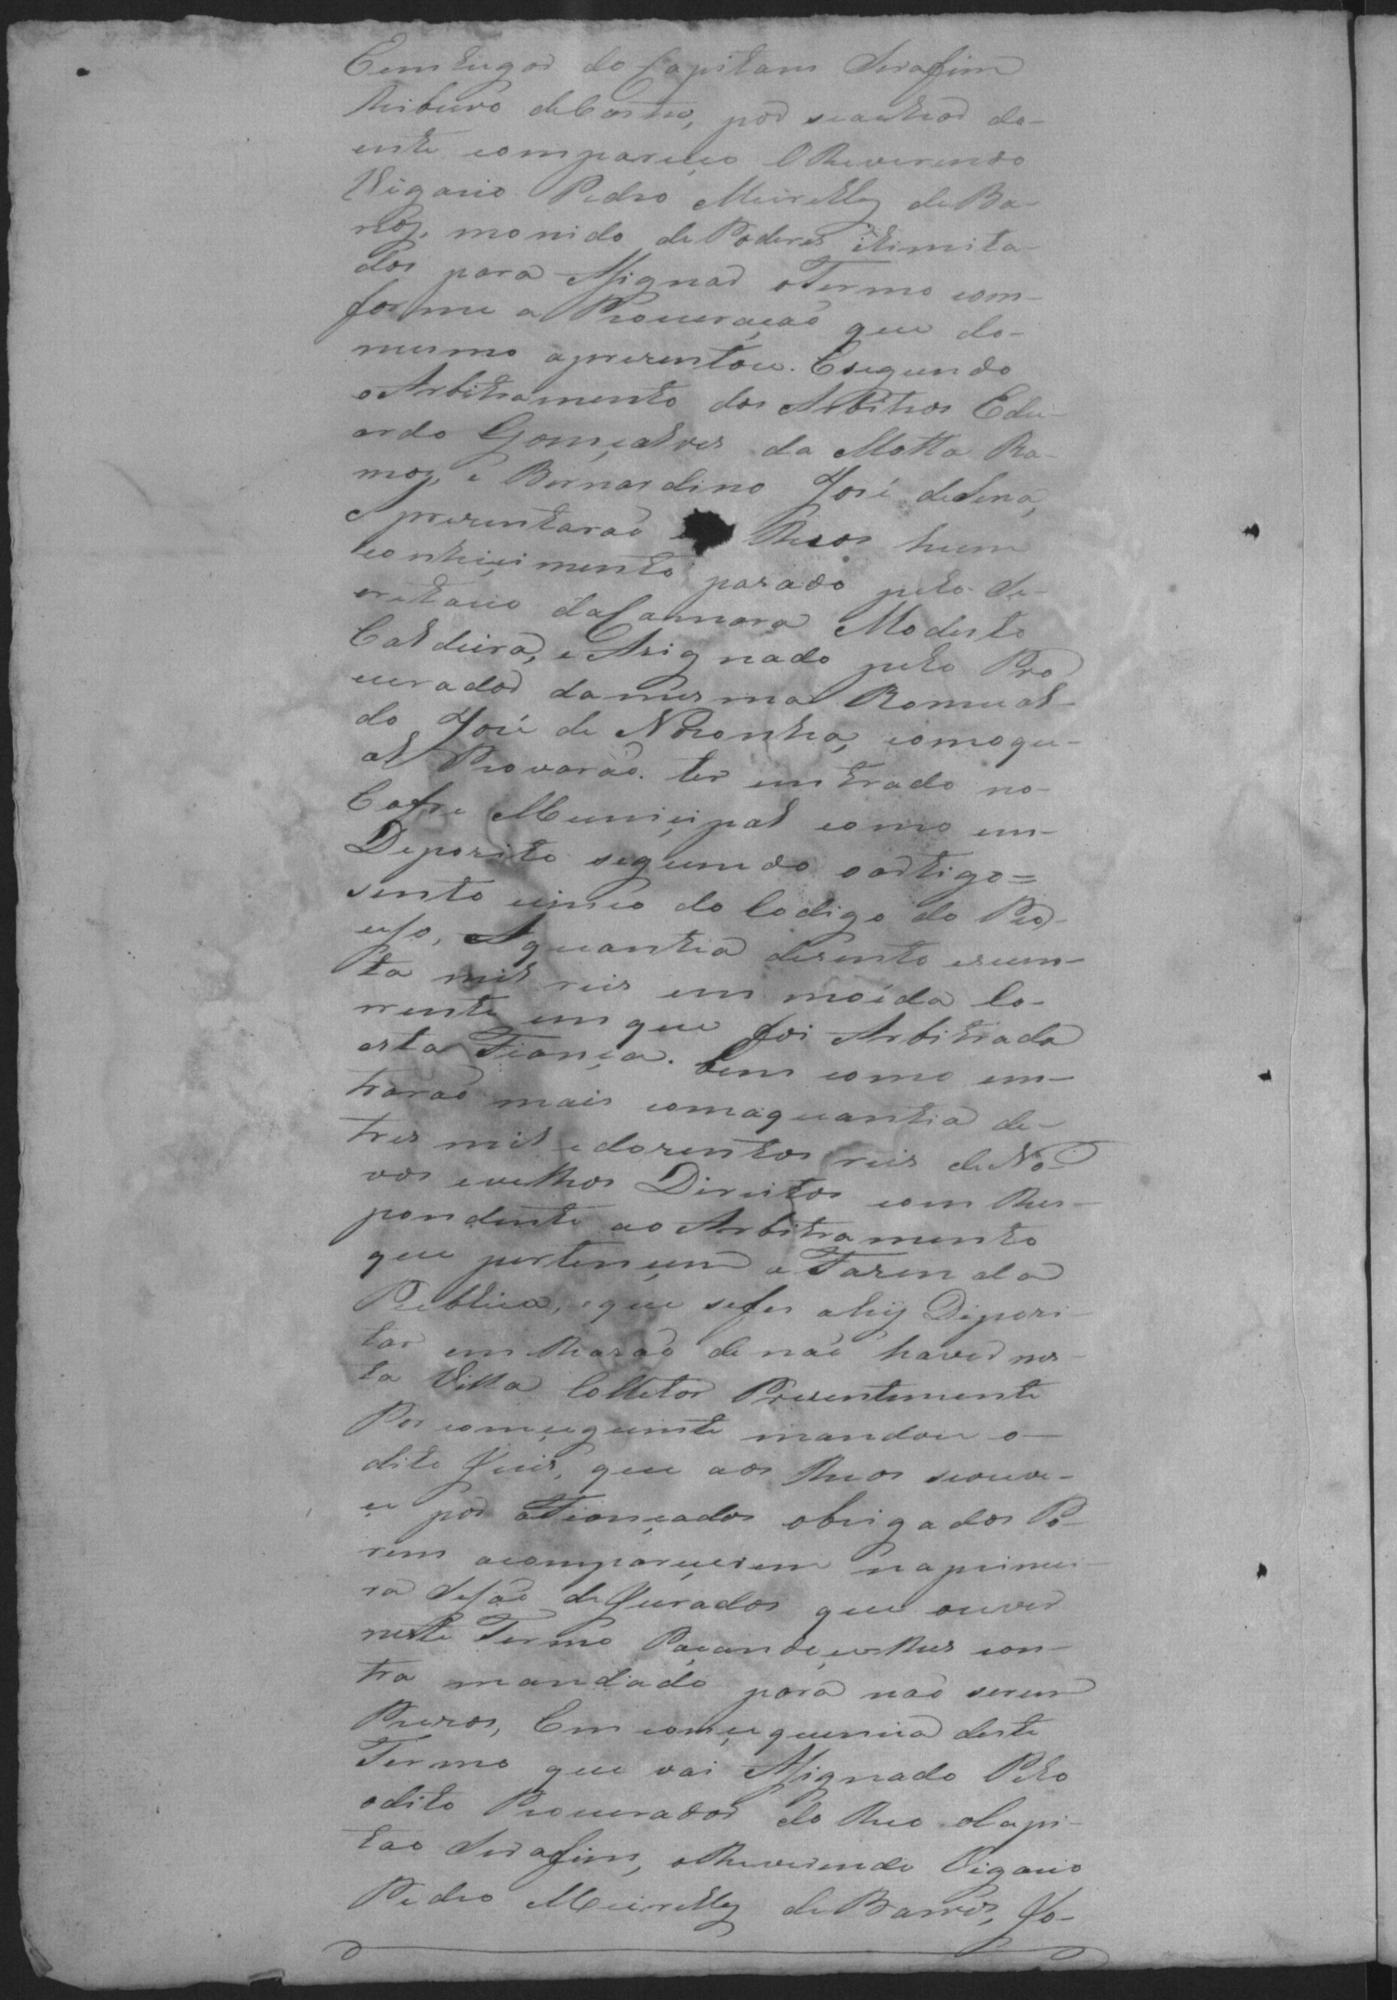 Eem lugar do Capitam Serafim
Ribeiro deCastro, por seachar do-
ente compareçeo O Reverendo
Vigario Pedro Meirelles deBa-
rros, monido de Poderes ilimita-
dos para Assignar oTermo com-
forme a Procuração que do-
mesmo aprezentou. Esegundo
oArbitramento dos Arbitros Edu-
ardo Gomçalves da Motta Ra-
mos, e Bernardino José deSena,
aprezentarão Reos hum
conheçimento pasado pelo Se-
cretario daCamara Modesto
Caldeira, e Asignado pelo Pro
curador damesma Romual-
do José de Noronha, comoqu-
al Provarão ter emtrado no
Cofre Muniçipal como em-
Deposito segumdo oartigo=
sento eimco do Codigo do Pro-
cesso, Aquantia desento esem-
ta mil reis em moéda Co-
rrente emque foi Arbitrada
esta Fiança. Bem como em-
trarão mais comaquantia de-
tres mil edozentos reis deNo-
vos evelhos Direitos com Res-
pondente aoArbitramento
que pertençem a Fazenda
Publica, eque sefes ahy Depozi-
tar em Razão de não haver nes-
ta Villa Colletor Prezentemente
Por comçeguinte mandou o-
dito Juis, que aos Reos seouve-
çe por aFiançados obrigados Po-
rem acompareçerem naprimei-
ra Sesão deJurados que ouver
neste Termo Paçandoçelhes con-
tra mandado para não serem
Prezos, Em comçequencia deste
Termo que vai Assignado Pelo
odito Procurador do Reo oCapi-
tao Serafim, oReverendo Vigario
Pedro Meirelles deBarros, Jo-